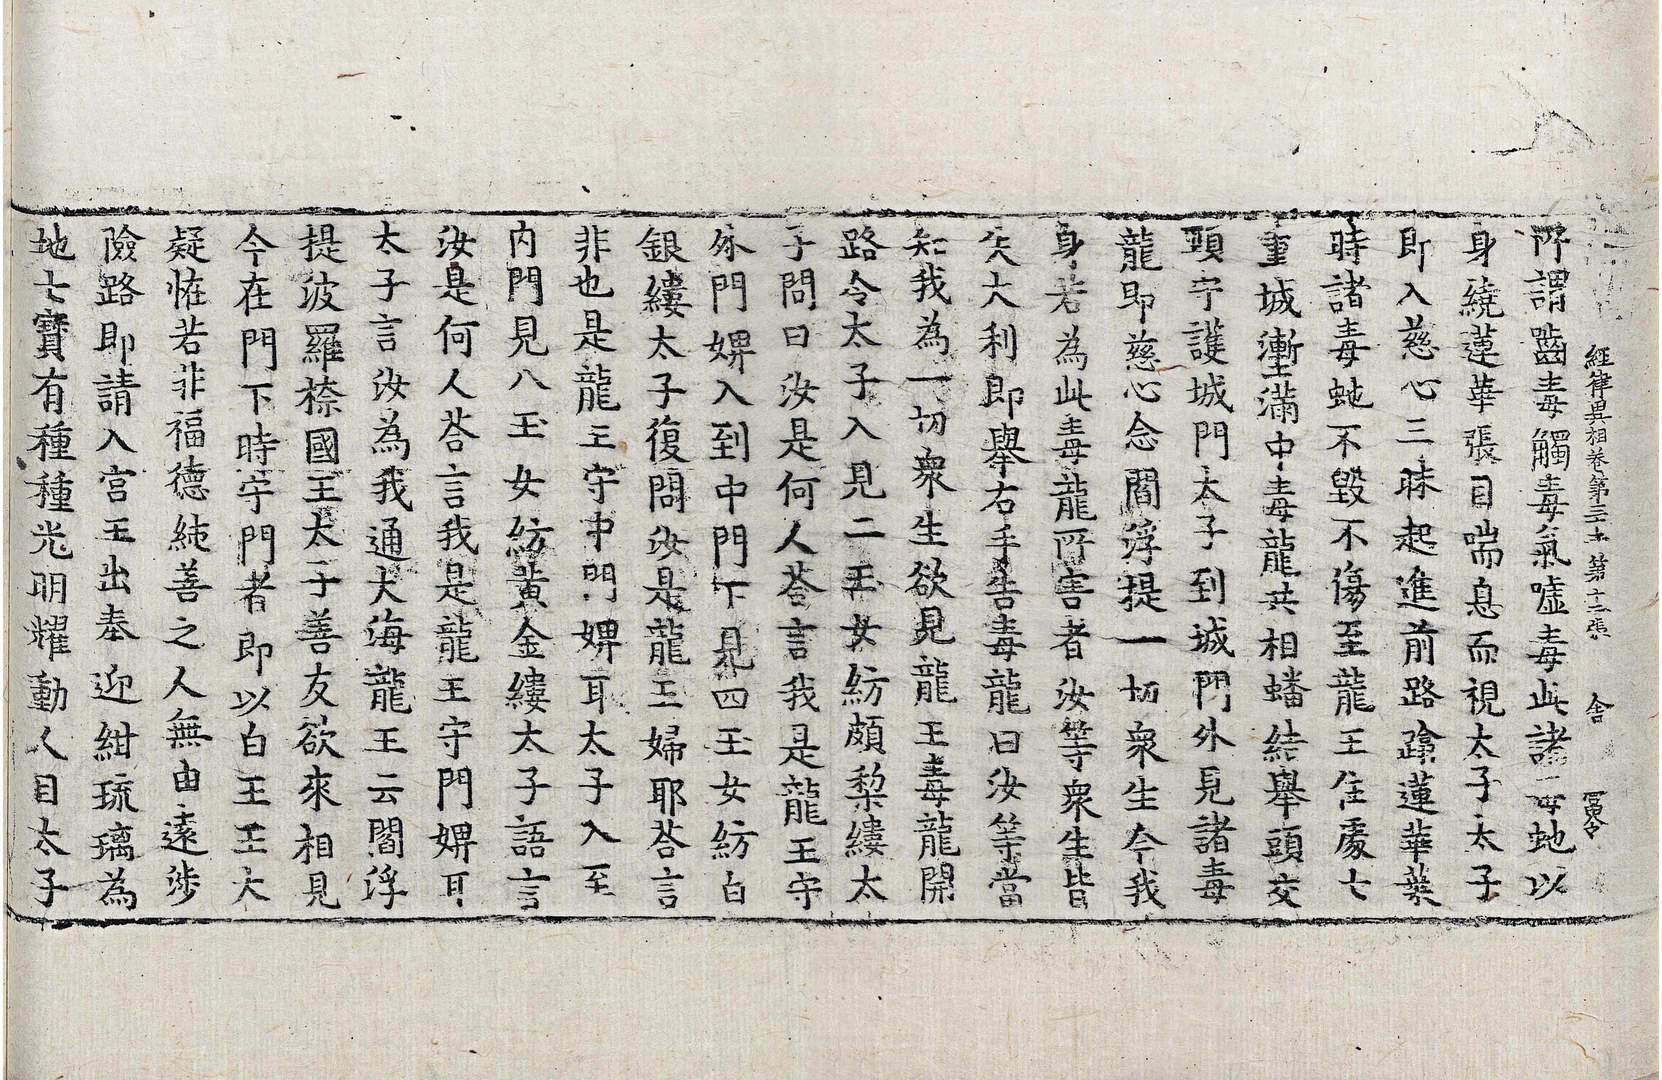 經律異相卷第三十 第十二張 舍
所謂齧毒觸毒氣噓毒此諸毒虵以
身繞蓮華張目喘息而視太子太子
即入慈心三昧起進前路蹹蓮華葉
時諸毒虵不毀不傷至龍王住處七
重城壍塹滿中毒龍共相蟠結舉頭交
頸守護城門太子到城門外見諸毒
龍即慈心念閻浮提一切衆生今我
身若為此毒龍所害者汝等衆生皆
失大利即舉右手告毒龍曰汝等當
知我為一切衆生欲見龍王毒龍開
路令太子入見二玉女紡頗梨縷太
子問曰汝是何人荅言我是龍王守
外門婢入到中門下見四玉女紡白
銀縷太子復問汝是龍王婦耶荅言
非也是龍王守中門婢耳太子入至
内門見八玉女紡黄金縷太子語言
汝是何人荅言我是龍王守門婢耳
太子言汝為我通大海龍王云閻浮
提波羅㮈國王太子善友欲來相見
今在門下時守門者即以白王王大
疑恠若非福德純善之人無由遠涉
險路即請入宫王出奉迎紺琉璃為
地七寶有種種光明耀動人目太子